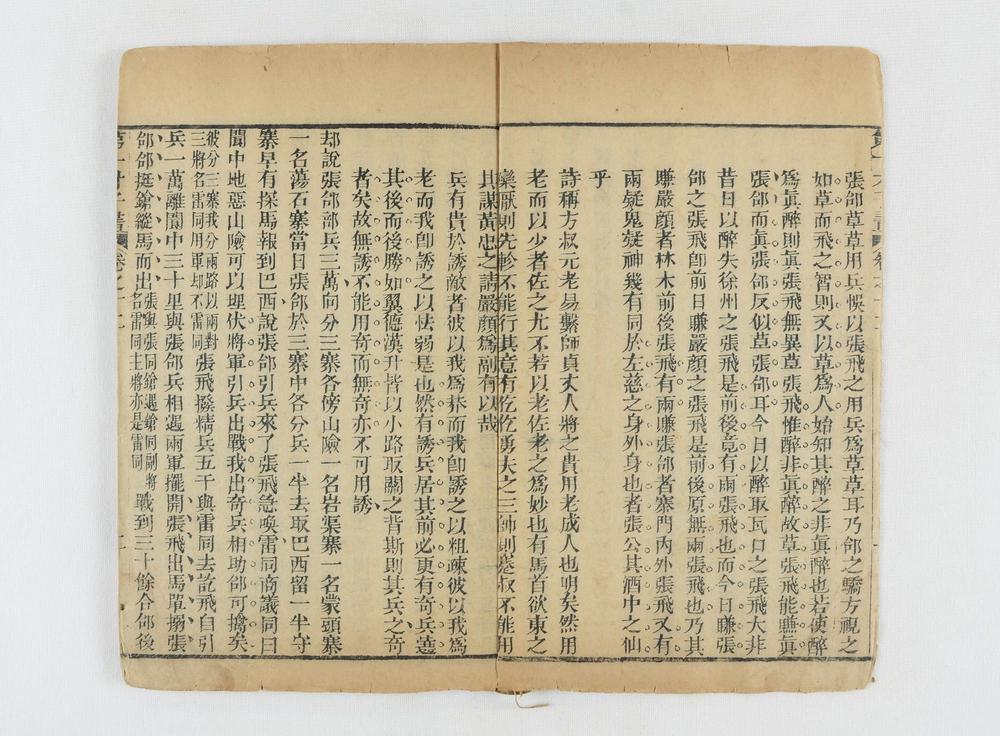 張郃草草用兵悞以張飛之用兵爲草草耳乃郃之驕方視之
如草而飛之智則又以草爲人始知其醉之非眞醉也若使醉
爲眞醉則眞張飛無異草張飛惟醉非眞醉故草張飛能賺眞
張郃而眞張郃反似草張郃耳今日以醉取瓦口之張飛大非
昔日以醉失徐州之張飛是前後竟有兩張飛也而今日賺張
郃之張飛卽前日賺嚴顔之張飛是前後原無兩張飛也乃其
賺嚴顔者林木前後張飛有兩賺張郃者寨門內外張飛又有
兩疑鬼疑神幾有同於左慈之身外身也者張公其酒中之仙
乎
詩稱方叔元老易繫師貞丈人將之貴用老成人也明矣然用
老而以少者佐之尤不若以老佐老之爲妙也有馬首欲東之
欒黶則先軫不能行其意有仡仡勇夫之三帥則蹇叔不能用
其謀黃忠之請嚴顔爲副有以哉
兵有貴於誘敵者彼以我爲莽而我卽誘之以粗疎彼以我爲
老而我卽誘之以怯弱是也然有誘兵居其前必更有奇兵遶
其後而後勝如翼德漢升皆以小路取關之背斯則其兵之奇
者矣故無誘不能用奇而無奇亦不可用誘
却說張郃部兵三萬向分三寨各傍山險一名岩渠寨一名蒙頭寨
一名蕩石寨當日張郃於三寨中各分兵一半去取巴西留一半守
寨早有探馬報到巴西說張郃引兵來了張飛急喚雷同商議同曰
閬中地惡山險可以埋伏將軍引兵出戰我出奇兵相助郃可擒矣
彼分三寨我分兩路以兩對三將名雷同用軍却不雷同張飛撥精兵五千與雷同去訖飛自引
兵一萬離閬中三十里與張郃兵相遇兩軍擺開張飛出馬單搦張
郃郃挺鎗縱馬而出張與張同鎗遇鎗同副將名雷同主將亦是雷同戰到三十餘合郃後
第一才子書 卷之十二